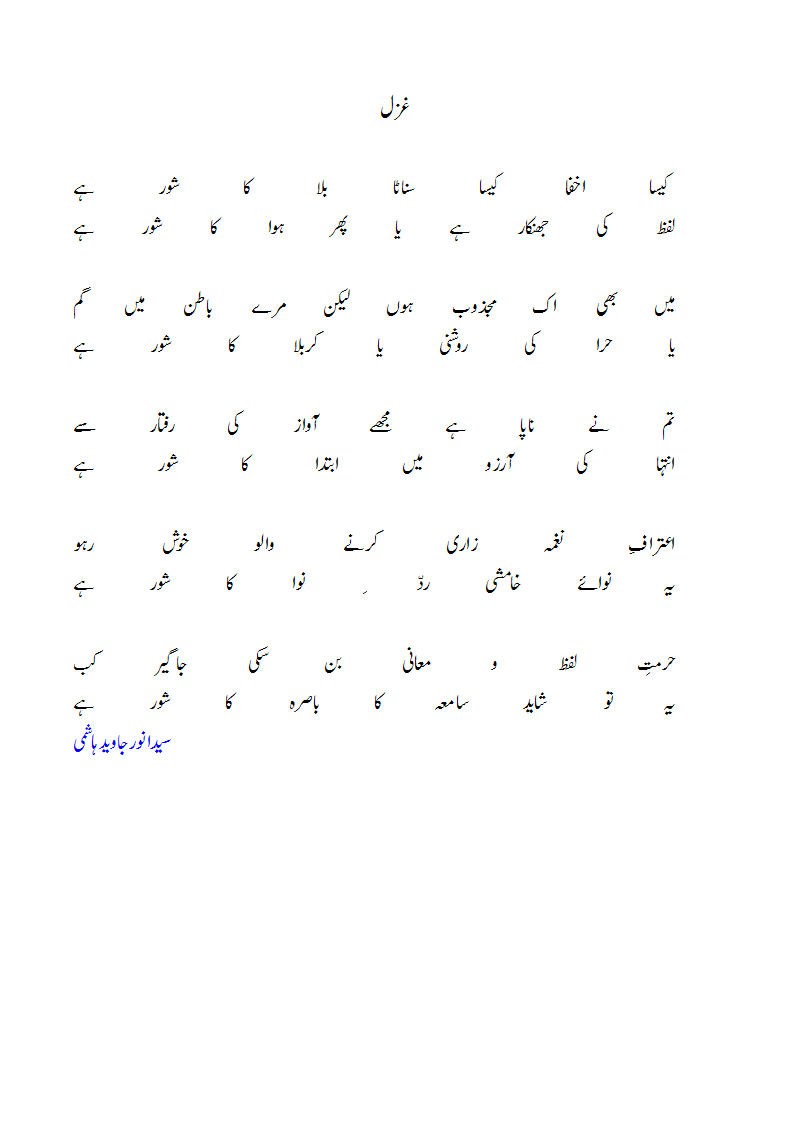 غزل
کیسا اخفا کیسا سناٹا بلا کا شور ہے
لفظ کی جھنکار ہے یا پھر ہوا کا شور ہے
میں بھی اک مجذوب ہوں لیکن مرے باطن میں گم
یا حرا کی روشنی یا کربلا کا شور ہے
تم نے ناپا ہے مجھے آواز کی رفتار سے
انتہا کی آرزو میں ابتدا کا شور ہے
اعترافِ نغمہ زاری کرنے والو خوش رہو
یہ نوائے خامشی ردّ ِ نوا کا شور ہے
حرمتِ لفظ و معانی بن سکی جاگیر کب
یہ تو شاید سامعہ کا باصرہ کا شور ہے
سیدانورجاویدہاشمی